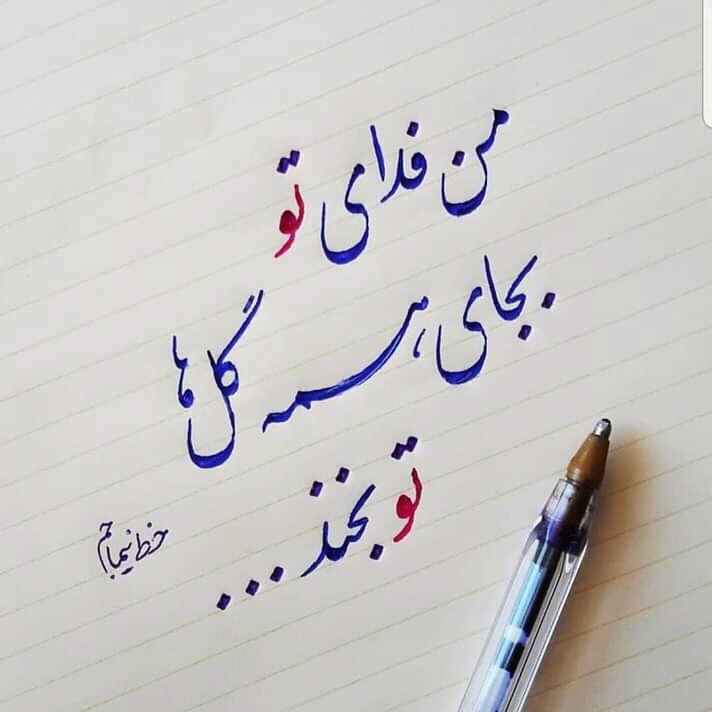 من فدای تو
بجای همه گل‌ها
تو بخند...
خط نیما جم